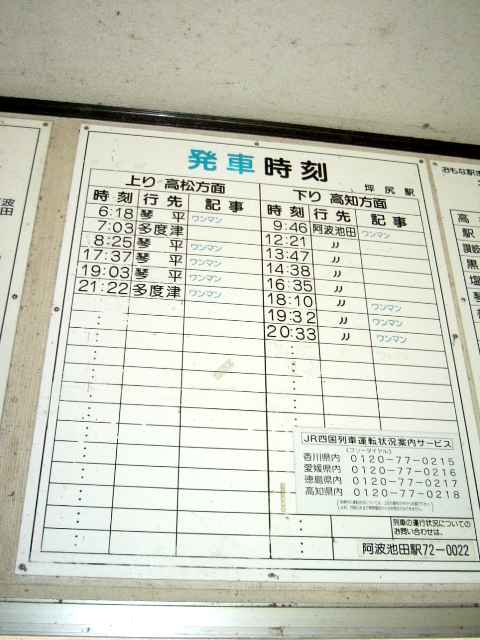 発車時刻
坪尻駅
上り 高松方面
時刻 行先 記事
6:18 琴平 ワンマン
7:03 多度津
8:25 琴平 ワンマン
17:37 琴平 ワンマン
19:03 琴平 ワンマン
21:22 多度津 ワンマン
下り 高知方面
時刻 行先 記事
9:46 阿波池田 ワンマン
12:21 〃
13:47 〃
14:38 〃
16:35 〃
18:10 〃 ワンマン
19:32 〃 ワンマン
20:33 〃 ワンマン
JR四国列車運転状況案内サービス
(フリーダイヤル)
香川県内 0120-77-0215
愛媛県内 0120-77-0216
徳島県内 0120-77-0217
高知県内 0120-77-0218
列車の運行状況についての
お問い合わせは、
阿波池田駅72-0022
おもな駅
高
駅
黒